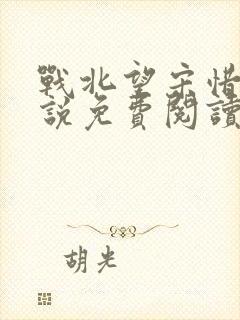 戰北望宋惜
說免費閱讀
胡光